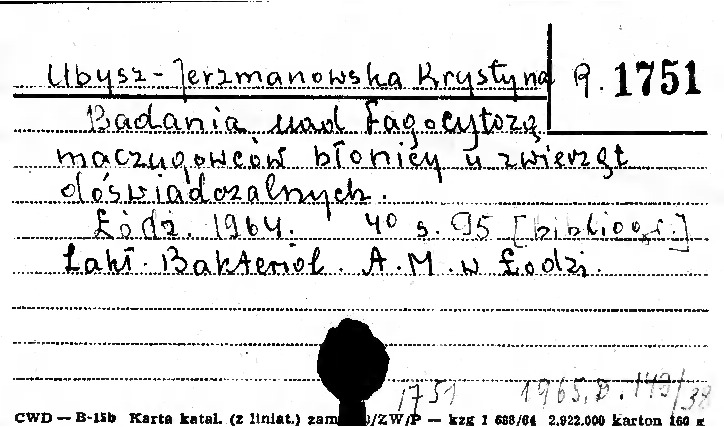 Ubysz-Jerzmanowska Krystyna R. 1751
Badania nad fagocytozą
maczugowców błonicy u zwierząt
doświadczalnych.
Łódź. 1964. 4⁰ s. 95 [bibliogr.]
Zakł. Bakteriol. A.M. w Łodzi.
1751 1965.D.
CWD — B-15b Karta katal. (z liniat.) zam /ZW/P — kzg 1 688/64 2.922.000 karton 160 g